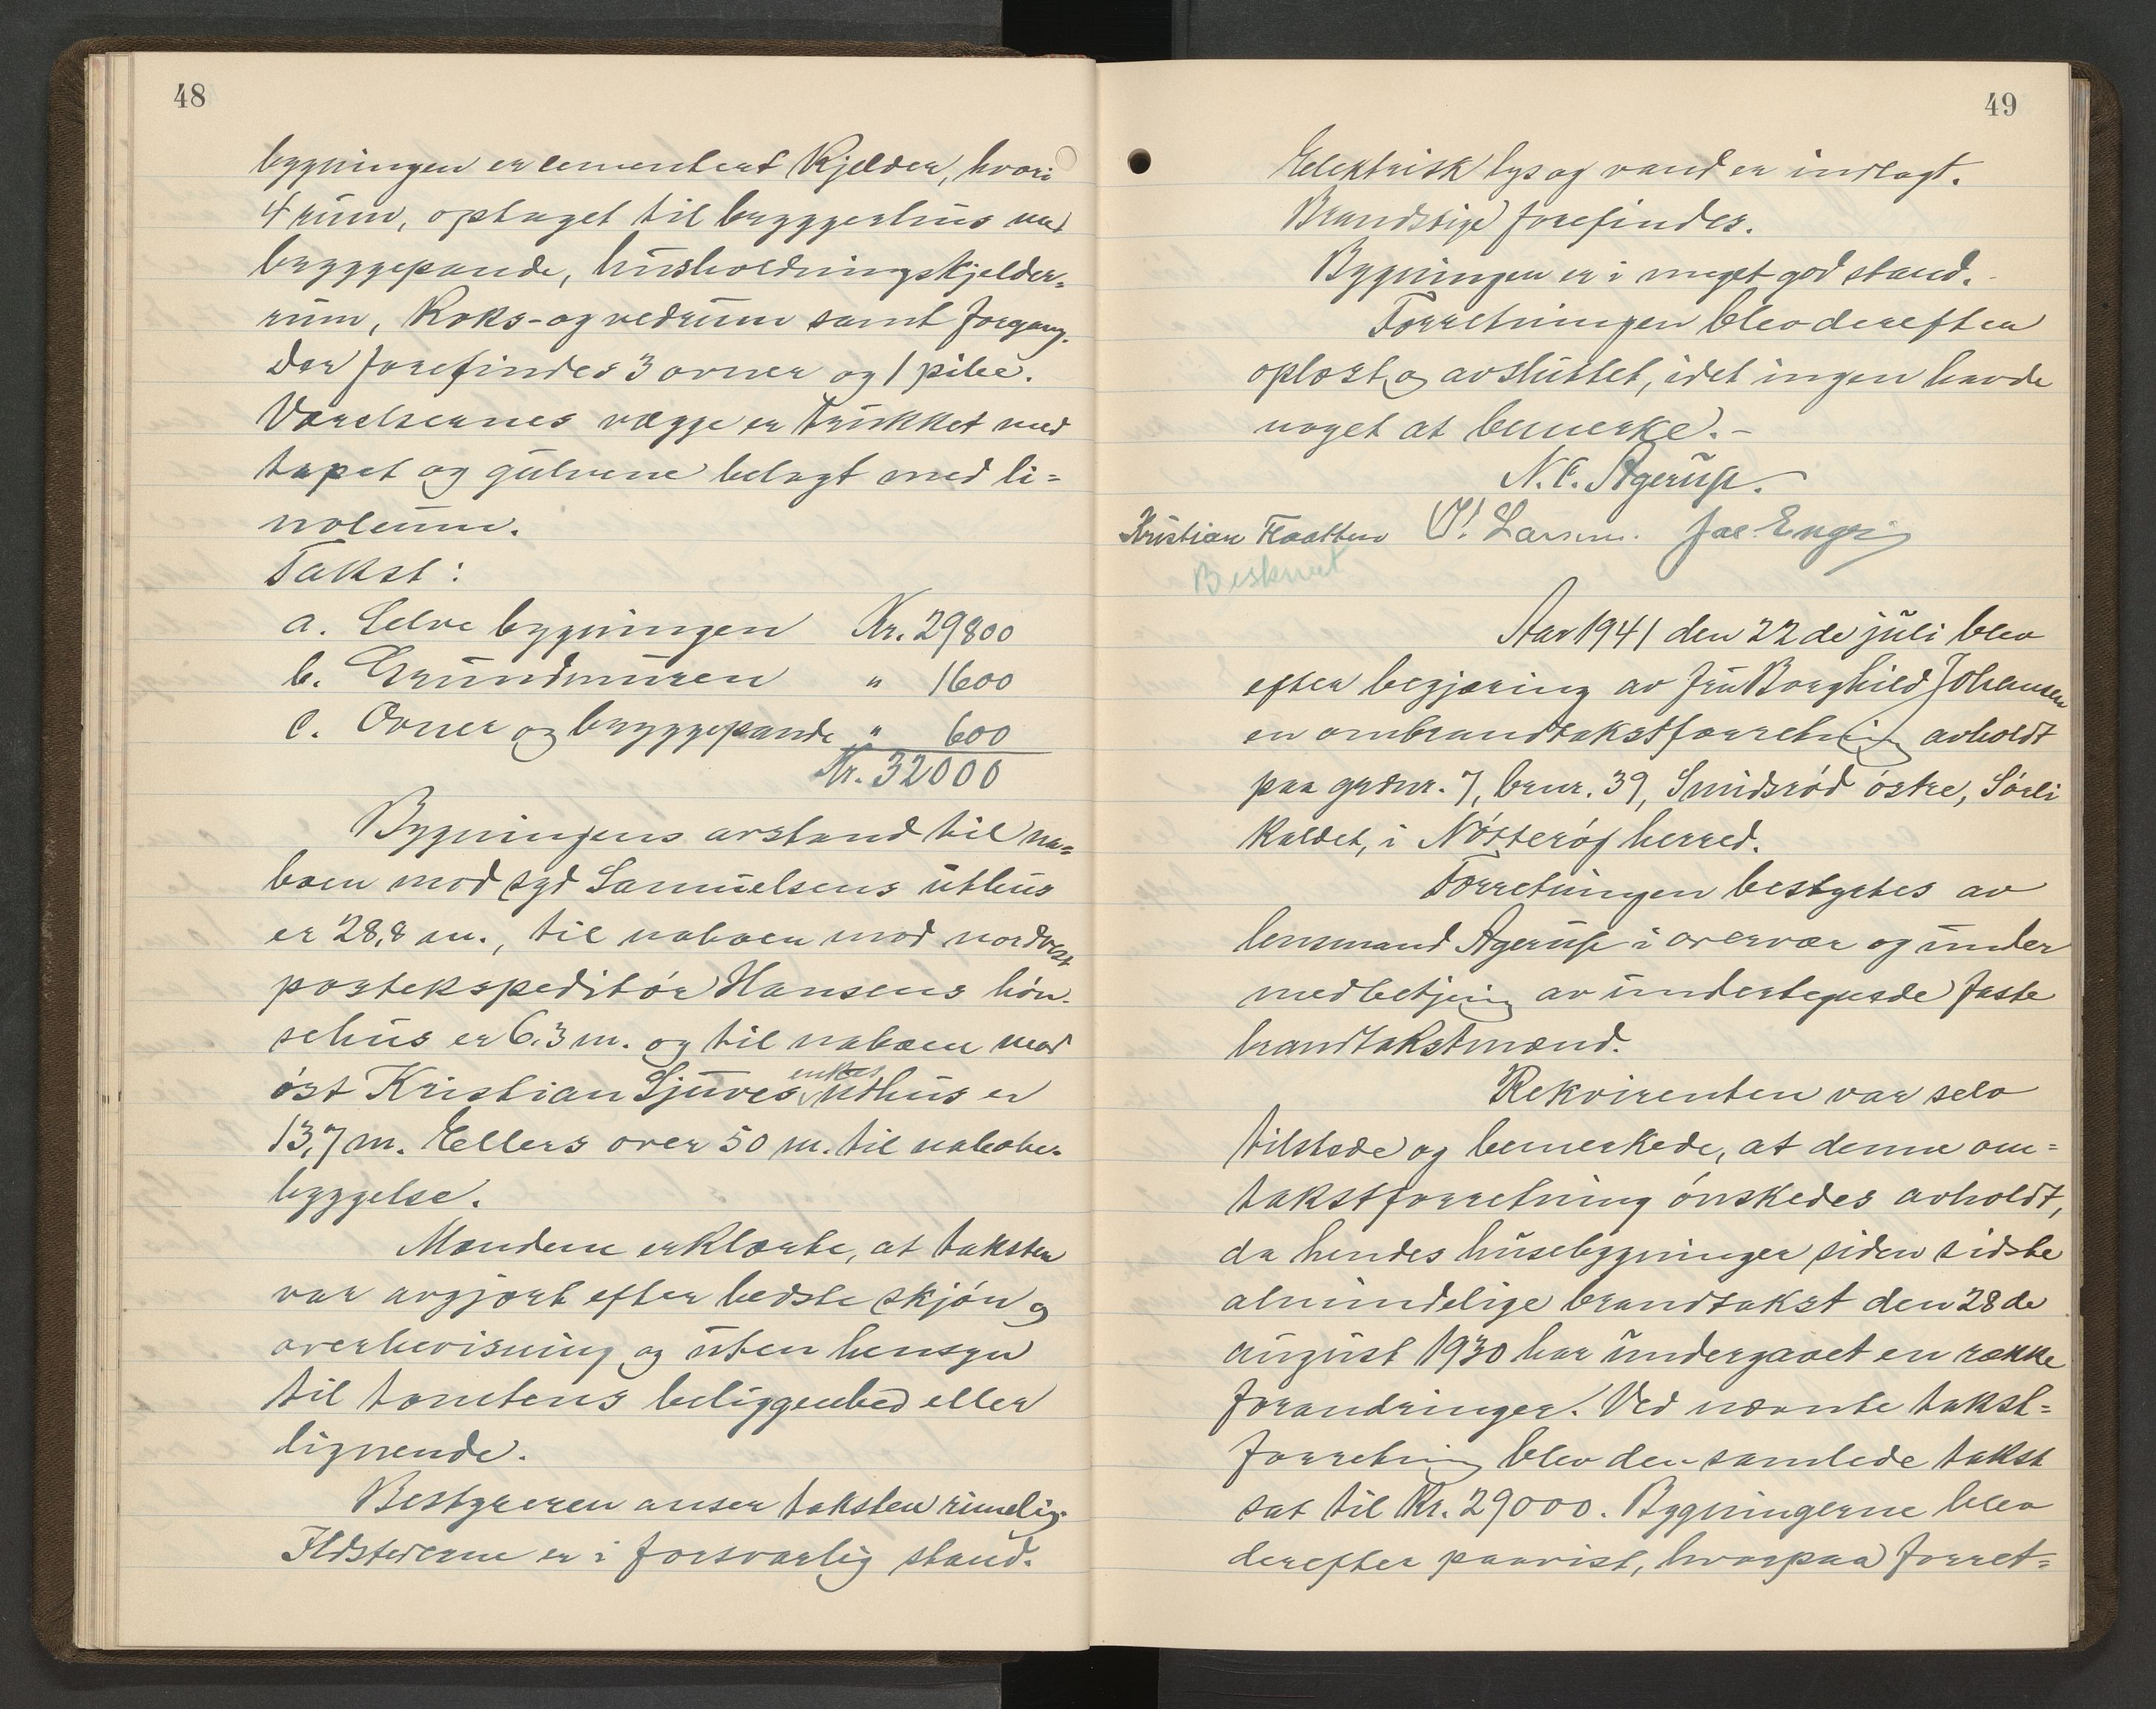 48
bygningen er cementert Kjelder, hvori
4 rum, optaget til bryggerhus med
bryggepande, husholdningskjelder-
rum, Koks- og vedrum samt forgang.
Der forefindes 3 ovner og 1 pibe.
Værelsernes vægge er trukket med
tapet og gulvene belagt med li=
noleum.
Takst:
a. Selve bygningen Kr. 29800
b. Grundmuren " 1600
c. Ovner og bryggepande " 600
Kr. 32000
Bygningens avstand til na=
boen mod syd Samuelsens uthus
er 28,8 m., til naboen mod nordvest
postekspeditør Hansens høn-
sehus er 6.3 m. og til naboen mod
enkes
øst Kristian Sjuves uthus er
13,7 m. Ellers over 50 m. til nabobe-
byggelse.
Mændene erklærte, at taksten
var avgjort efter bedste skjøn og
overbevisning og uten hensyn
til tomtens beliggenhed eller
lignende.
Bestyreren anser taksten rimelig.
Ildstederne er i forsvarlig stand.
49
Elektrisk lys og vand er indlagt.
Brandstige forefindes.
Bygningen er i meget god stand.-
Forretningen blev derefter
oplæst og avsluttet, idet ingen havde
noget at bemerke.-
N. C. Agerup.
Kristian Flaatten O! Larsen. Jac. Enge
Beskrevet
Aar 1941 den 22de juli blev
efter begjæring av fru Borghild Johansen
en ombrandtakstforretning avholdt
paa grdnr. 7, brnr. 39, Smidsrød østre, Sørli
kaldet, i Nøtterøy herred.
Forretningen bestyrtes av
lensmand Agerup i overvær og under
medbetjening av undertegnede faste
brandtakstmænd.
Rekvirenten var selv
tilstede og bemerkede, at denne om=
takstforretning ønskedes avholdt,
da hendes husebygninger siden sidste
almindelige brandtakst den 28de
august 1930 har undergaaet en række
forandringer. Ved nævnte takst=
forretning blev den samlede takst
sat til Kr. 29000. Bygningerne blev
derefter paavist, hvorpaa forret=